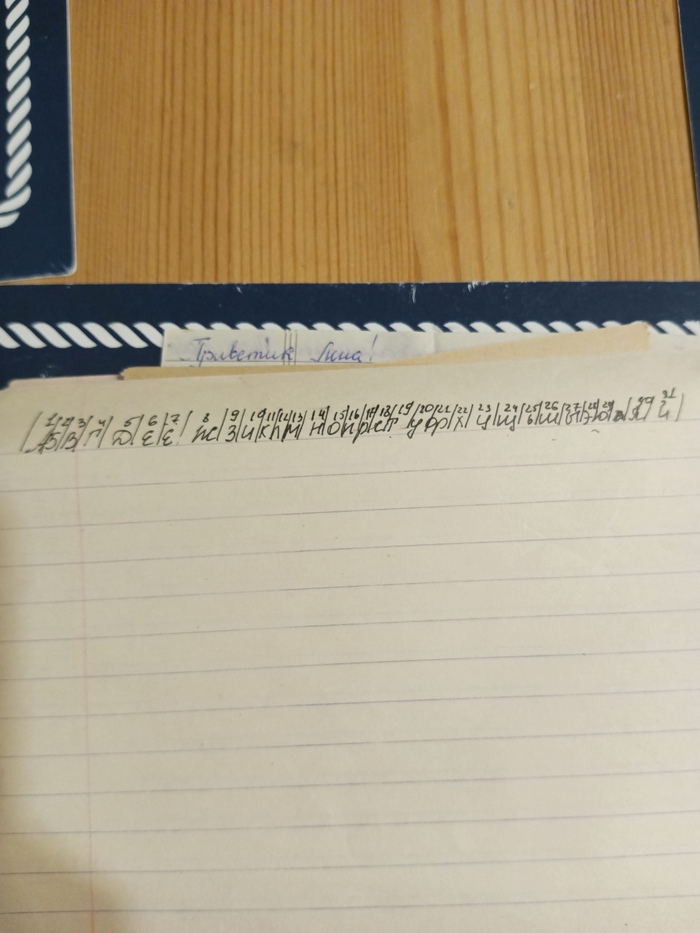 Приветик Лина!
1 2 3 4 5 6 7 8 9 10 11 12 13 14 15 16 17 18 19 20 21 22 23 24 25 26 27 28 29 29 31
|А|Б|В|Г| Д| Е| Ё| Ж|З|И|К|Л|М|Н|О|П|Р|С|Т| У|Ф|Х|Ц|Щ|Ь|Ш|Ы|Э|Ю| |Я| Ч|